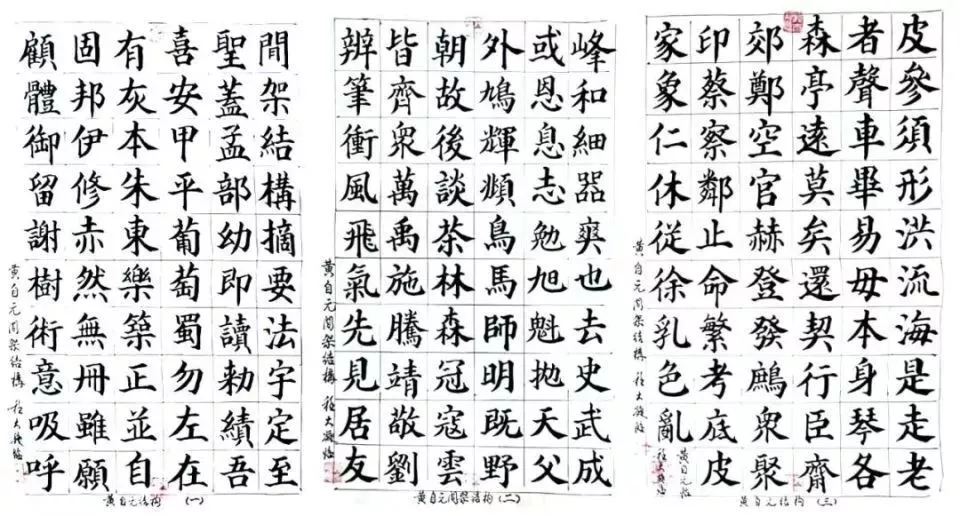 間架結構摘要法宇定至
聖蓋孟部幼即讀勅績吾
喜安甲平葡萄蜀勿左在
有灰本朱東樂築正並自
固邦伊修赤然無冊雖願
顧體御留謝樹術意吸呼
黄自元间架结構 程大臨
黄自元结构 (一)
峰和細器爽也去史武成
或恩息志勉旭魁抛天父
外鳩輝頻鳥馬師明既野
朝故後談茶林森冠寇雲
皆齊衆萬禹施騰靖敬劉
辨筆衝風飛氣先見居友
黄自元间架结構 程大臨
黄自元间架结构 (二)
皮參須形洪流海是走老
者聲車畢易毋本身琴各
森亭遠莫矣還契行臣齊
郊鄭空官赫登發衆聚
印蔡察鄰止命繁考底皮
家象仁休從徐乳色亂
黄自元间架结構
黄自元结构 (三)